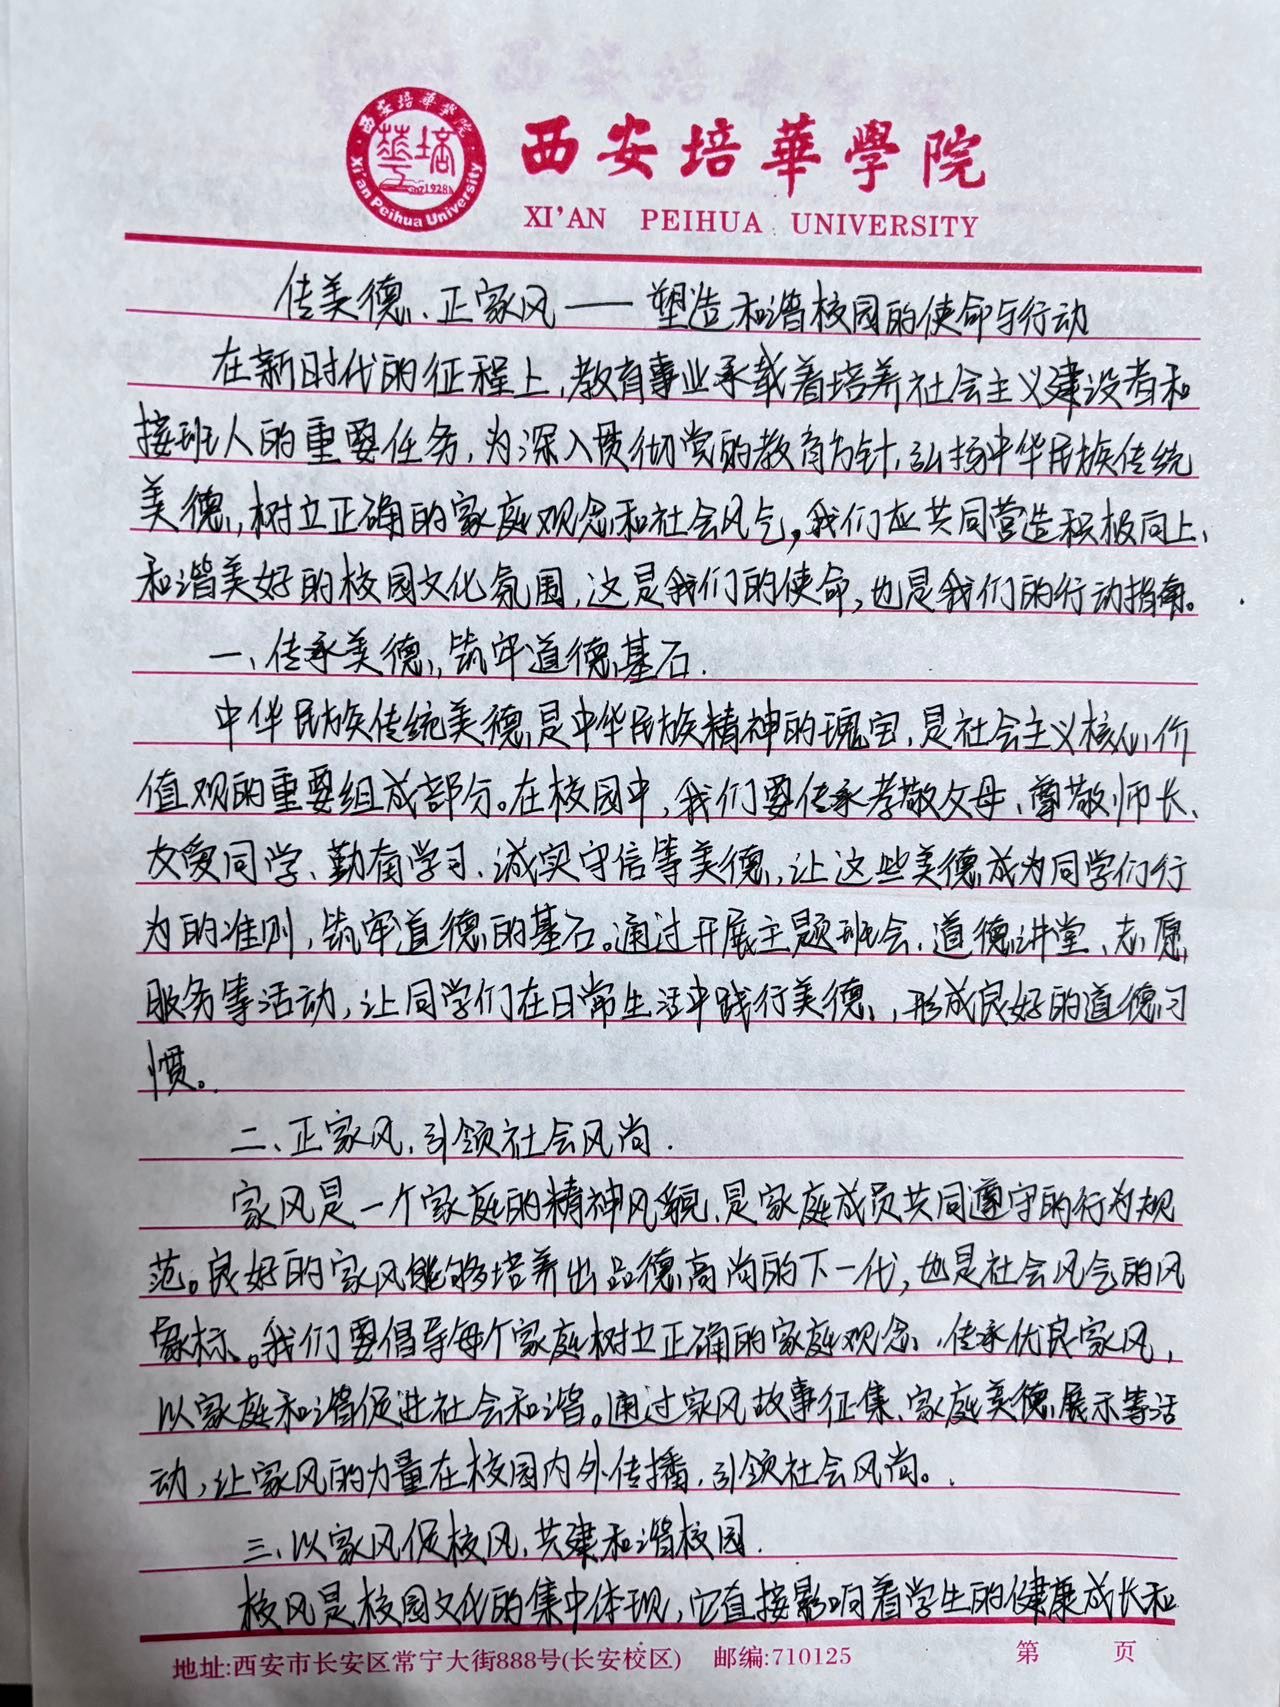 西安培華學院
西安培華學院
XI'AN PEIHUA UNIVERSITY
華培
1928
Xi'an Peihua University
传美德、正家风——塑造和谐校园的使命与行动
在新时代的征程上,教育事业承载着培养社会主义建设者和
接班人的重要任务,为深入贯彻党的教育方针,弘扬中华民族传统
美德,树立正确的家庭观念和社会风气,我们应共同营造积极向上、
和谐美好的校园文化氛围,这是我们的使命,也是我们的行动指南。
一、传承美德,筑牢道德基石.
中华民族传统美德是中华民族精神的瑰宝,是社会主义核心价
值观的重要组成部分。在校园中,我们要传承孝敬父母、尊敬师长、
友爱同学、勤奋学习、诚实守信等美德,让这些美德成为同学们行
为的准则,筑牢道德的基石。通过开展主题班会、道德讲堂、志愿
服务等活动,让同学们在日常生活中践行美德,形成良好的道德习
惯。
二、正家风,引领社会风尚.
家风是一个家庭的精神风貌,是家庭成员共同遵守的行为规
范。良好的家风能够培养出品德高尚的下一代,也是社会风气的风
象标。我们要倡导每个家庭树立正确的家庭观念,传承优良家风,
以家庭和谐促进社会和谐。通过家风故事征集、家庭美德展示等活
动,让家风的力量在校园内外传播,引领社会风尚。
三、以家风促校风,共建和谐校园.
校风是校园文化的集中体现,它直接影响着学生的健康成长和
地址:西安市长安区常宁大街888号(长安校区) 邮编:710125 第 页